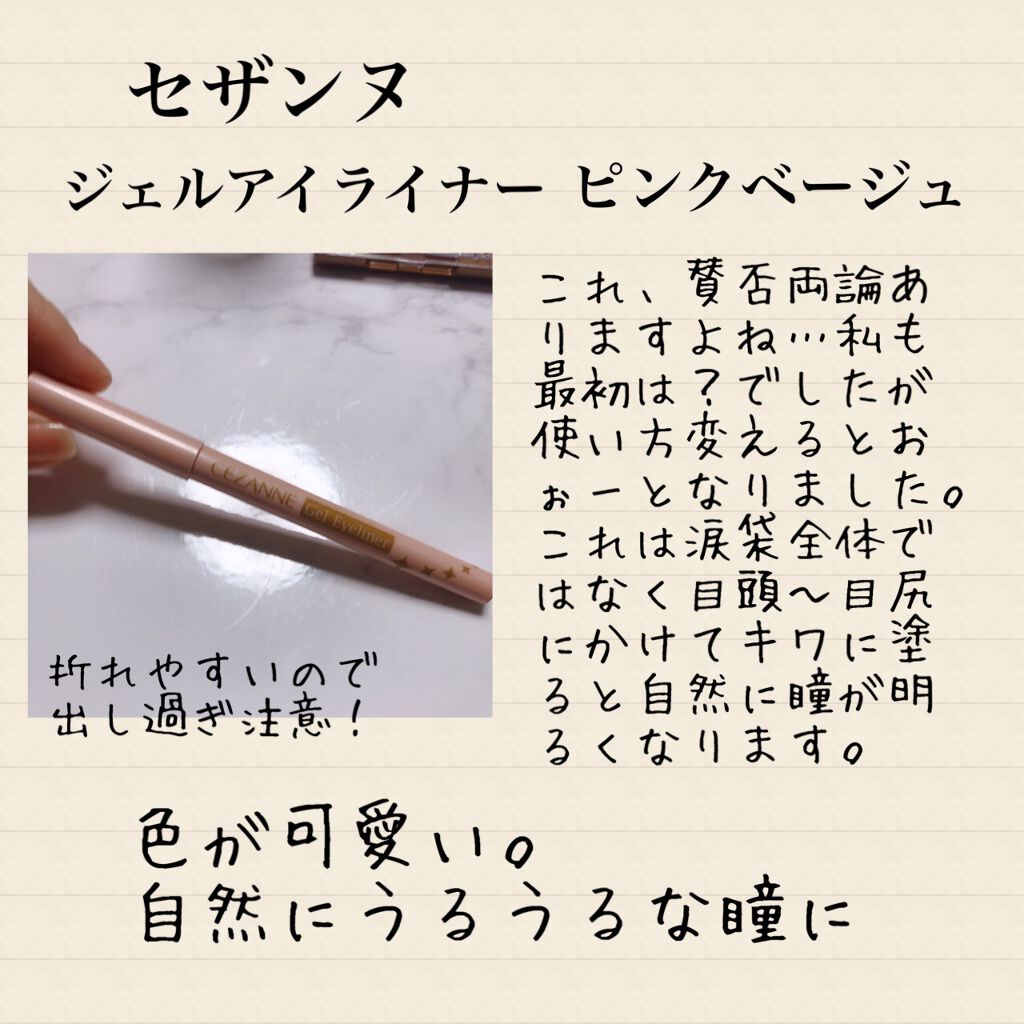 セザンヌ
ジェルアイライナー ピンクベージュ
CEZANNE Gel Eyeliner
折れやすいので
出し過ぎ注意！
これ、賛否両論あ
りますよね…私も
最初は？でしたが
使い方変えるとお
ぉーとなりました。
これは涙袋全体で
はなく目頭〜目尻
にかけてキワに塗
ると自然に瞳が明
るくなります。
色が可愛い。
自然にうるうるな瞳に